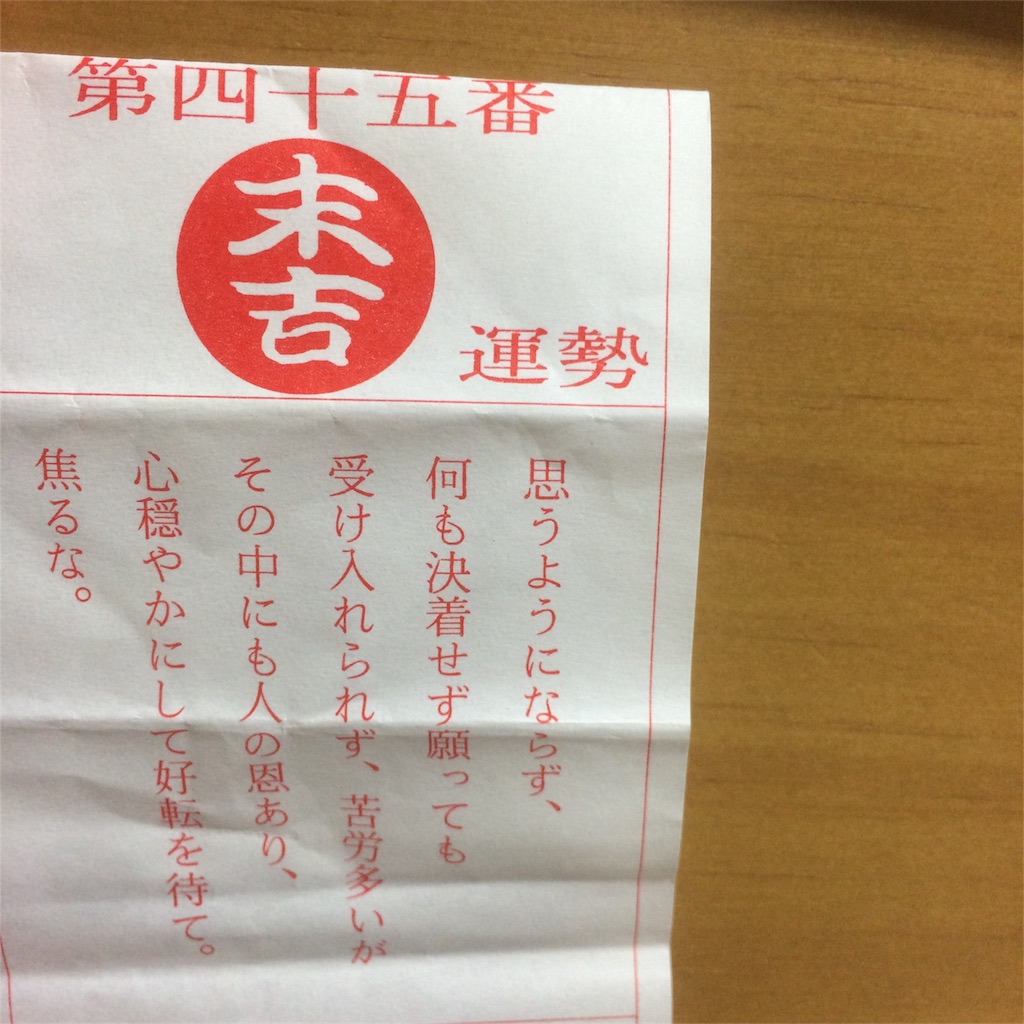 第四十五番
末吉
運勢
思うようにならず、
何も決着せず願っても
受け入れられず、苦労多いが
その中にも人の恩あり、
心穏やかにして好転を待て。
焦るな。